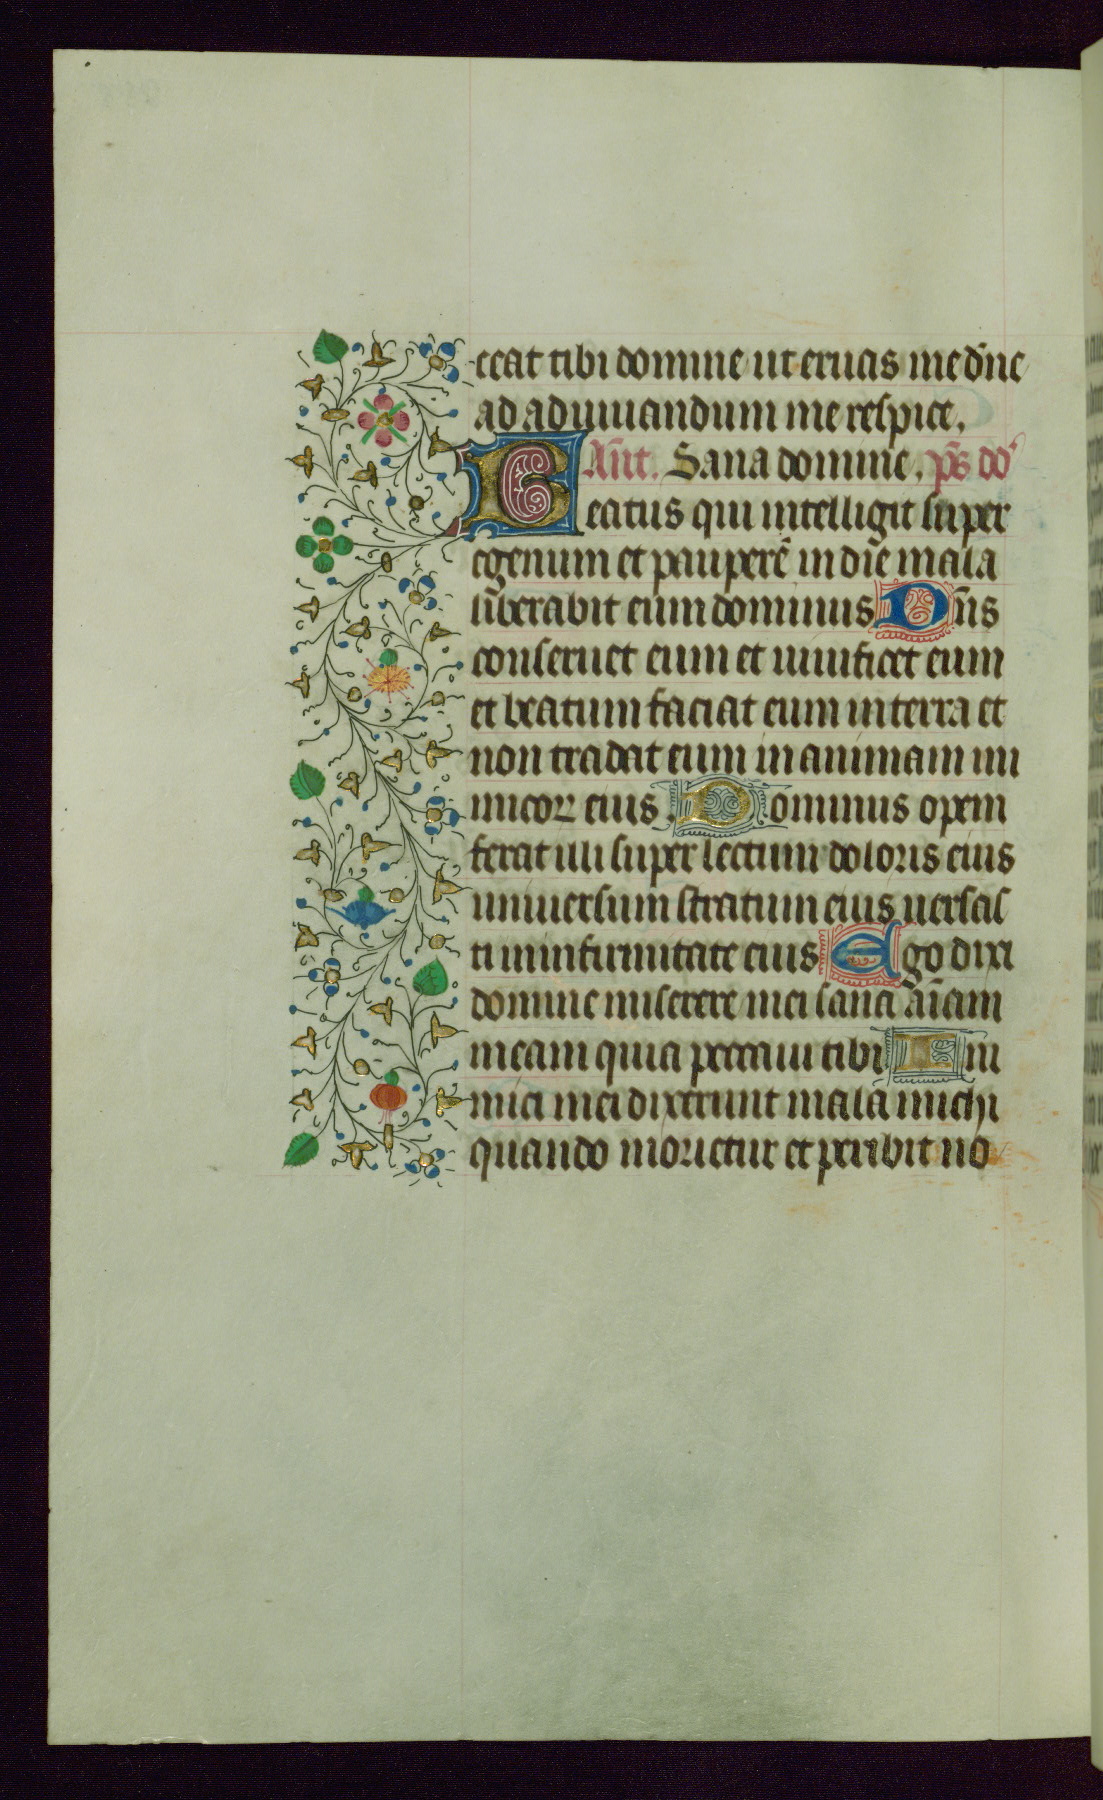 ceat tibi domine ut eruas me dn̄e
ad adiuuandum me respice.
Ant̄. Sana domine. ps̄ dd
Beatus qui intelligit super
egenum et pauperē in die mala
liberabit eum dominus Dn̄s
conseruet eum et uiuificet eum
et beatum faciat eum in terra et
non tradat eum in animam ini
micoꝝ eius. Dominus opem
ferat illi super lectum doloris eius
uniuersum stratum eius uersas
ti in infirmitate eius Ego dixi
domine miserere mei sana aīam
meam quia peccaui tibi Ini
mici mei dixerunt mala michi
quando morietur et peribit no